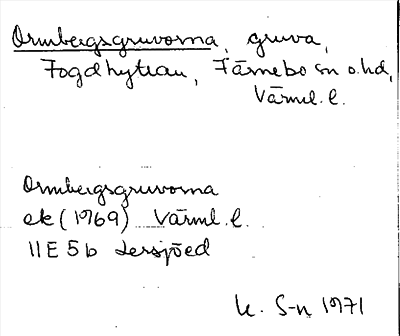 Ormbergsgruvorna, gruva,
Fogdhyttan, Färnebo sn o. hd,
Värml. l.
Ormbergsgruvorna
ek (1969) Värml. l.
11E 5b Lersjöed
K. S-n 1971